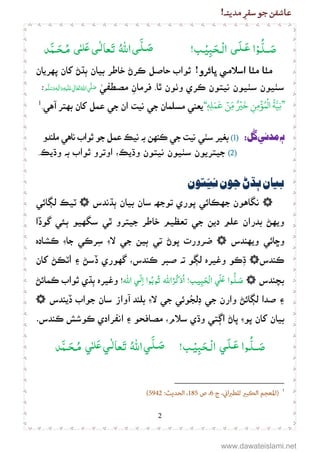 عاشقن جو سفر مدينہ!
صَلُّوۡا عَلَی الۡحَبِیۡب! صَلَّی اللہُ تَعَالٰی عَلٰی مُحَمَّد
مٺا مٺا اسلامي ڀائرو! ثواب حاصل ڪرڻ خاطر بيان ٻڌڻ کان پهريان
سٺيون سٺيون نيتون ڪري وٺون ٿا. فرمانِ مصطفيٰ صَلَّی اللہُ تَعَالٰی عَلَیۡہِ وَاٰلِہٖ وَسَلَّم:
”نِيَّةُ الْمُؤْمِنِ خَيْرٌ مِّنْ عَمَلِهٖ“ يعني مسلمان جي نيت ان جي عمل کان بهتر آهي. 1
ٻه مدني گل: (1) بغير سٺي نيت جي ڪنهن بہ نيڪ عمل جو ثواب ناهي ملندو
(2) جيتريون سٺيون نيتون وڌيڪ، اوترو ثواب بہ وڌيڪ.
بيان ٻڌڻ جون نيّتون
۞ نگاهون جهڪائي پوري توجهہ سان بيان ٻڌندس ۞ ٽيڪ لڳائي
ويهڻ بدران علمِ دين جي تعظيم خاطر جيترو ٿي سگهيو ٻئي گوڏا
وڇائي ويهندس ۞ ضرورت پوڻ تي ٻين جي لاءِ سرڪي جاءِ ڪشاده
ڪندس ۞ ڌڪو وغيره لڳو تہ صبر ڪندس، گهوري ڏسڻ ۽ اٽڪڻ کان
بچندس ۞ صَلُّوۡا عَلَی الۡحَبِیۡب، اُذۡکُرُوا اللہ، تُوۡبُوۡا اِلَی اللہ! وغيره ٻڌي ثواب ڪمائڻ
۽ صدا لڳائڻ وارن جي دِلجُوئي جي لاءِ بلند آواز سان جواب ڏيندس ۞
بيان کان پوءِ پاڻ اڳتي وڌي سلام، مصافحو ۽ انفرادي ڪوشش ڪندس.
صَلُّوۡا عَلَی الۡحَبِیۡب! صَلَّی اللہُ تَعَالٰی عَلٰی مُحَمَّد
1 (المعجم الكبير للطبراني، ج 6، ص 185، الحديث: 5942)
2
www.dawateislami.net